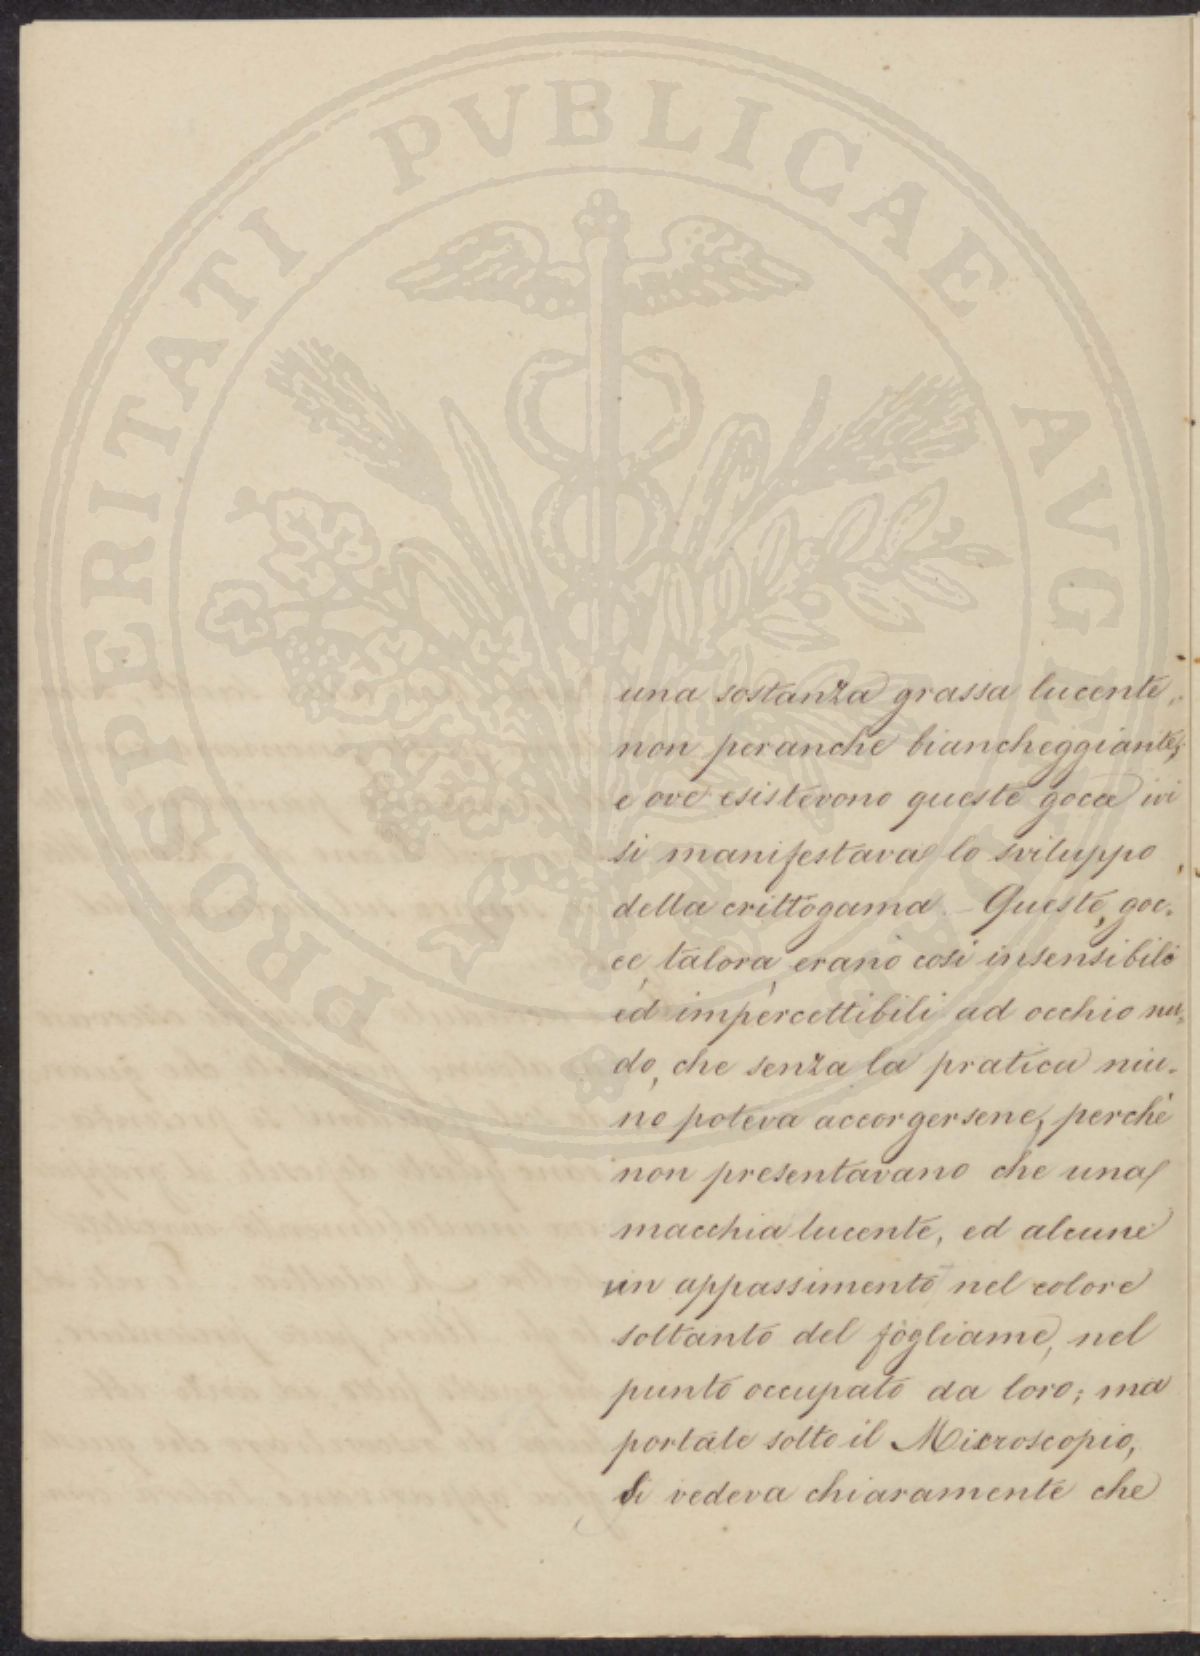 PROSPERITATI PVBLICAE AVGENDAE
una sostanza grassa lucente,
non peranche biancheggiante;
e ove esistevono queste gocce ivi
si manifestava lo sviluppo
della crittogama. - Queste, goc-
ce, talora, erano così insensibili
ed impercettibili ad occhio nu-
do, che senza la pratica niu-
no poteva accorgersene, perchè
non presentavano che una
macchia lucente, ed alcune
un appassimento nel colore
soltanto del fogliame, nel
punto occupato da loro; ma
portate sotto il Microscopio,
Si vedeva chiaramente che